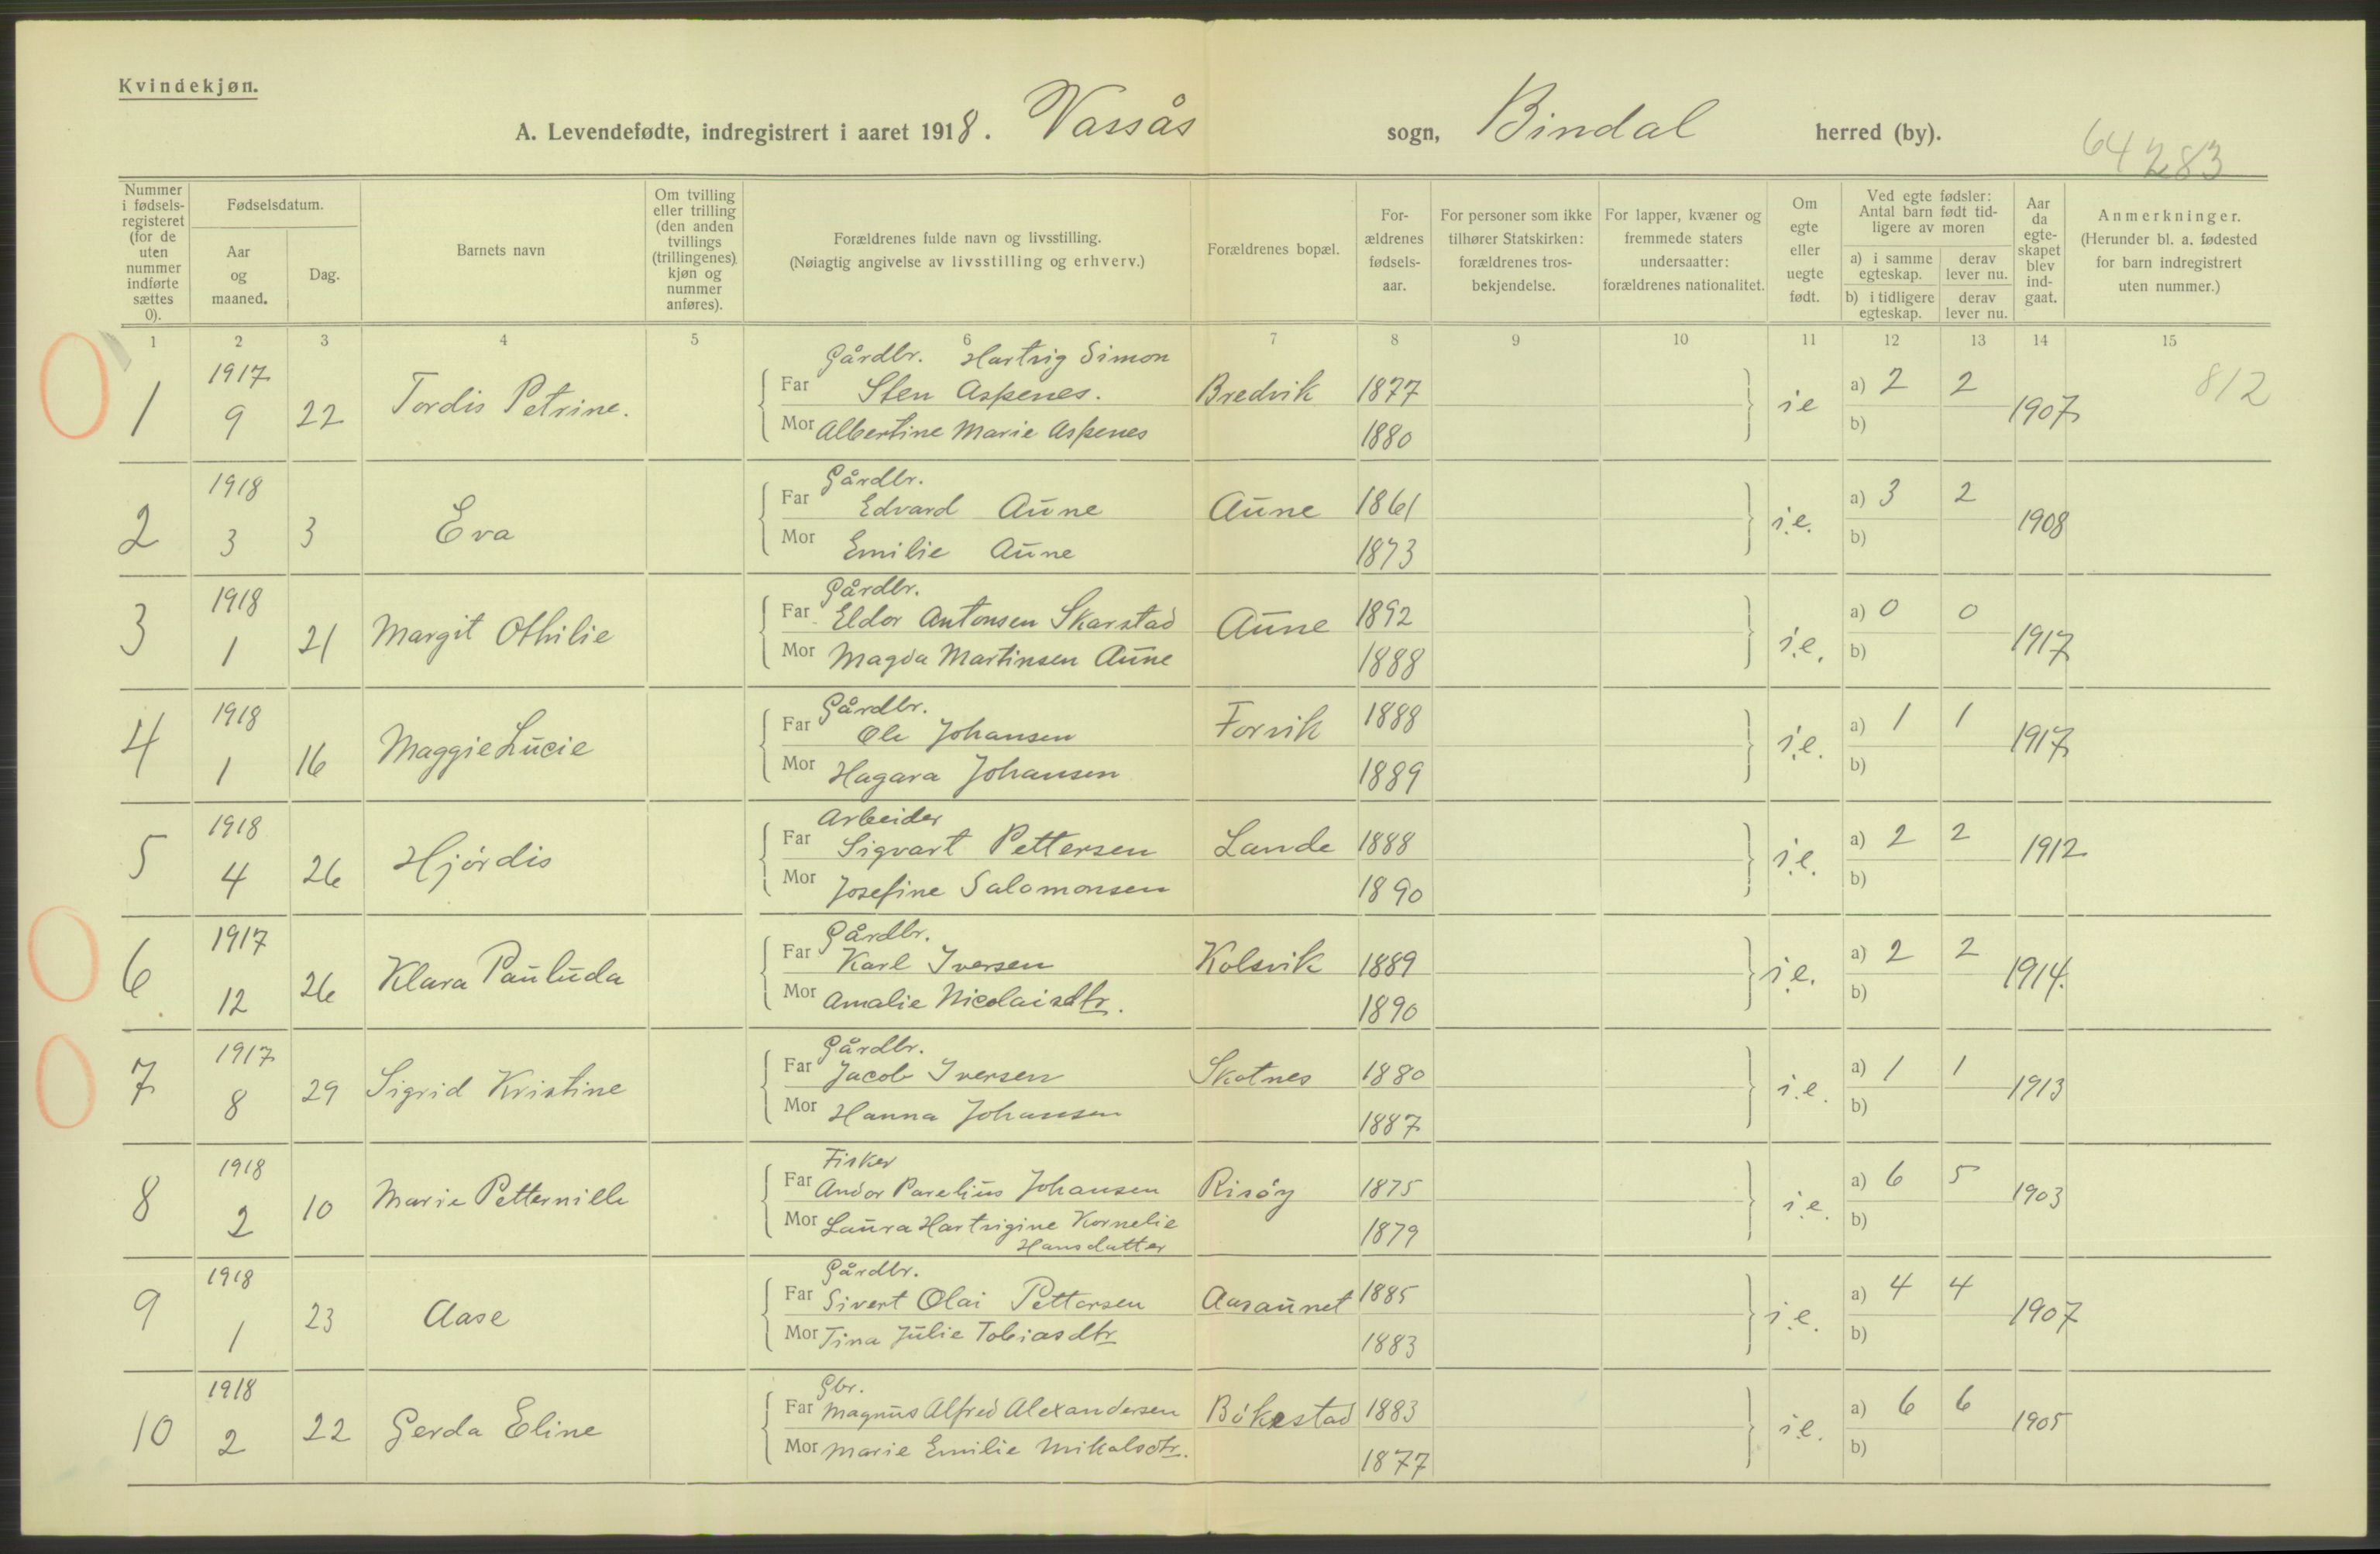 Kvindekjøn.
A. Levendefødte, indregistrert i aaret 1918. Vassås sogn, Bindal herred (by).
64 283
Nummer i fødsels-registeret (for de uten nummer indførte sættes 0).
Fødselsdatum.
Aar og maaned.
Dag.
Barnets navn
Om tvilling eller trilling (den anden tvillings (trillingenes) kjøn og nummer anføres).
Forældrenes fulde navn og livsstilling.
(Nøiagtig angivelse av livsstilling og erhverv.)
Forældrenes bopæl.
For-ældrenes fødsels-aar.
For personer som ikke tilhører Statskirken: forældrenes tros-bekjendelse.
For lapper, kvæner og fremmede staters undersaatter: forældrenes nationalitet.
Om egte eller uegte født.
Ved egte fødsler: Antal barn født tid-ligere av moren
a) i samme egteskap. derav lever nu.
b) i tidligere egteskap. derav lever nu.
Aar da egte-skapet blev ind-gaat.
Anmerkninger.
(Herunder bl. a. fødested for barn indregistrert uten nummer.)
1 2 3 4 5 6 7 8 9 10 11 12 13 14 15
1917 Gårdbr. Hartvig Simon
1 9 22 Tordis Petrine. Far Sten Aspenes. Bredvik 1877 ie a) 2 2 1907 812
Mor Albertine Marie Aspenes 1880 b)
1918 Gårdbr.
2 3 3 Eva Far Edvard Aune Aune 1861 i.e. a) 3 2 1908
Mor Emilie Aune 1873 b)
1918 Gårdbr.
3 1 21 Margit Othilie Far Eldor Antonsen Skarstad Aune 1892 i.e. a) 0 0 1917
Mor Magda Martinsen Aune 1888 b)
1918 Gårdbr.
4 1 16 Maggie Lucie Far Ole Johansen Forvik 1888 i.e. a) 1 1 1917
Mor Hagara Johansen 1889 b)
1918 Arbeider
5 4 26 Hjördis Far Sigvart Pettersen Lande 1888 i.e. a) 2 2 1912
Mor Josefine Salomonsen 1890 b)
1917 Gårdbr.
6 12 26 Klara Pauluda Far Karl Iversen Kolsvik 1889 i.e. a) 2 2 1914.
Mor Amalie Nicolaisdtr. 1890 b)
1917 Gårdbr.
7 8 29 Sigrid Kristine Far Jacob Iversen Skotnes 1880 i.e. a) 1 1 1913
Mor Hanna Johansen 1887 b)
1918 Fisker
8 2 10 Marie Petternille Far Andor Parelius Johansen Risöy 1875 i.e. a) 6 5 1903
Mor Laura Hartvigine Kornelie 1879 b)
Hansdatter
1918 Gårdbr.
9 1 23 Aase Far Sivert Olai Pettersen Aasaunet 1885 i.e. a) 4 4 1907
Mor Tina Julie Tobiasdtr 1883 b)
1918 Gbr.
10 2 22 Gerda Eline Far Magnus Alfred Alexandersen Bökestad 1883 i.e. a) 6 6 1905
Mor Marie Emilie Mikalsdtr. 1877 b)